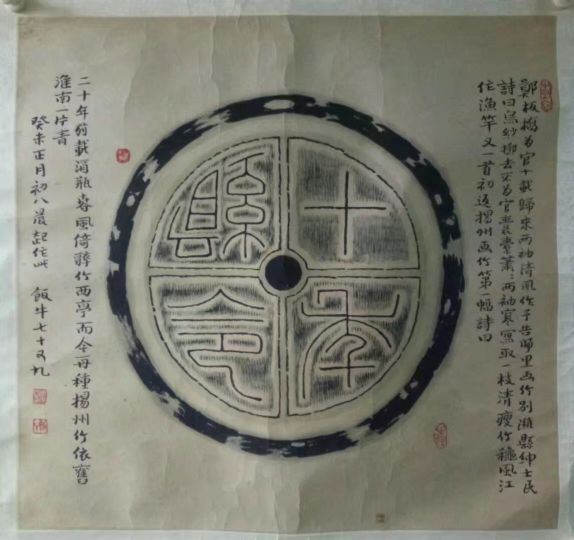 鄭板橋为官十載歸來两袖清風作予告歸里画竹别濰縣紳士民
詩曰烏紗去不为官囊橐蕭:两袖寒寫取一枝清瘦竹穐風江
作漁竿又一首初返揚州画竹第一幅詩曰
十年
縣令
二十年前載酒瓶春風倚醉竹西亭而今再種揚州竹依舊
淮南一片青
癸未正月初八晨起作此 飯牛七十又九